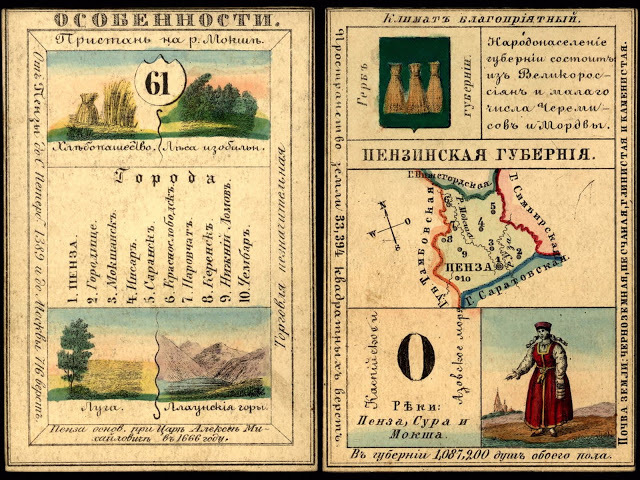 ОСОБЕННОСТИ.
Пристань на р. Мокшѣ.
61
Хлѣбопашество. Лѣса изобильн.
Города
1. ПЕНЗА.
2. Городище.
3. Мокшанскъ.
4. Инсаръ.
5. Саранскъ.
6. Краснослободскъ.
7. Наровчатъ.
8. Керенскъ.
9. Нижній Ломовъ.
10. Чембаръ.
Луга.
горы.
Пенза основ. при Царѣ Алексѣѣ Ми-
хайловичѣ въ 1666 году.
Отъ Пензы до С. Петерб. 1389 и до Москвы 716 верстъ.
Торговля незначительная
Климатъ благопріятный.
Гербъ
губерніи.
Народонаселеніе
губерніи состоитъ
изъ Великорос-
сіянъ и малаго
числа Череми-
совъ и Мордвы.
ПЕНЗИНСКАЯ ГУБЕРНІЯ.
Г. Нижегородская
Г. Симбирская
Г. Саратовская
Губ. Тамбовская
р. Мокша
р. Сура
З
О
ПЕНЗА
1
2
3
4
5
6
7
8
9
10
Каспійское и
Азовское моря
О
Рѣки:
Пенза, Сура и
Мокша.
Въ губерніи 1,087,200 душъ обоего пола.
Пространство земли 33,394 квадратныхъ верстъ.
Почва земли: черноземная, песчаная, глинистая и каменистая.